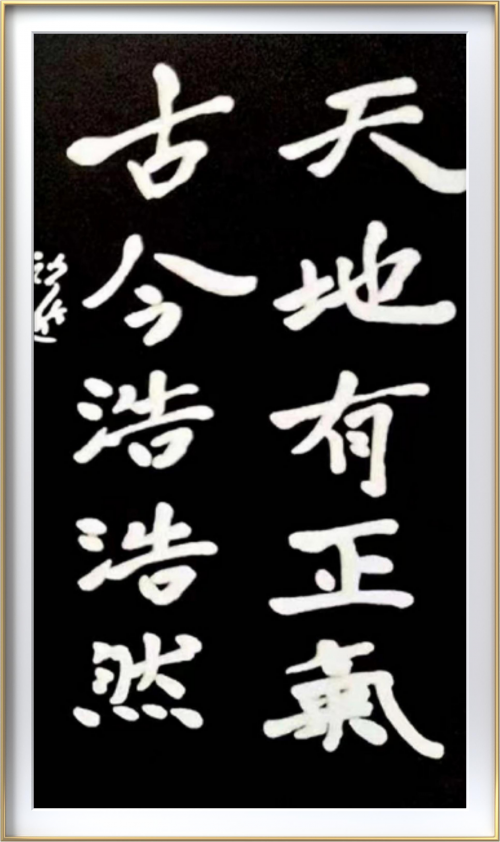 天地有正氣
古今浩浩然